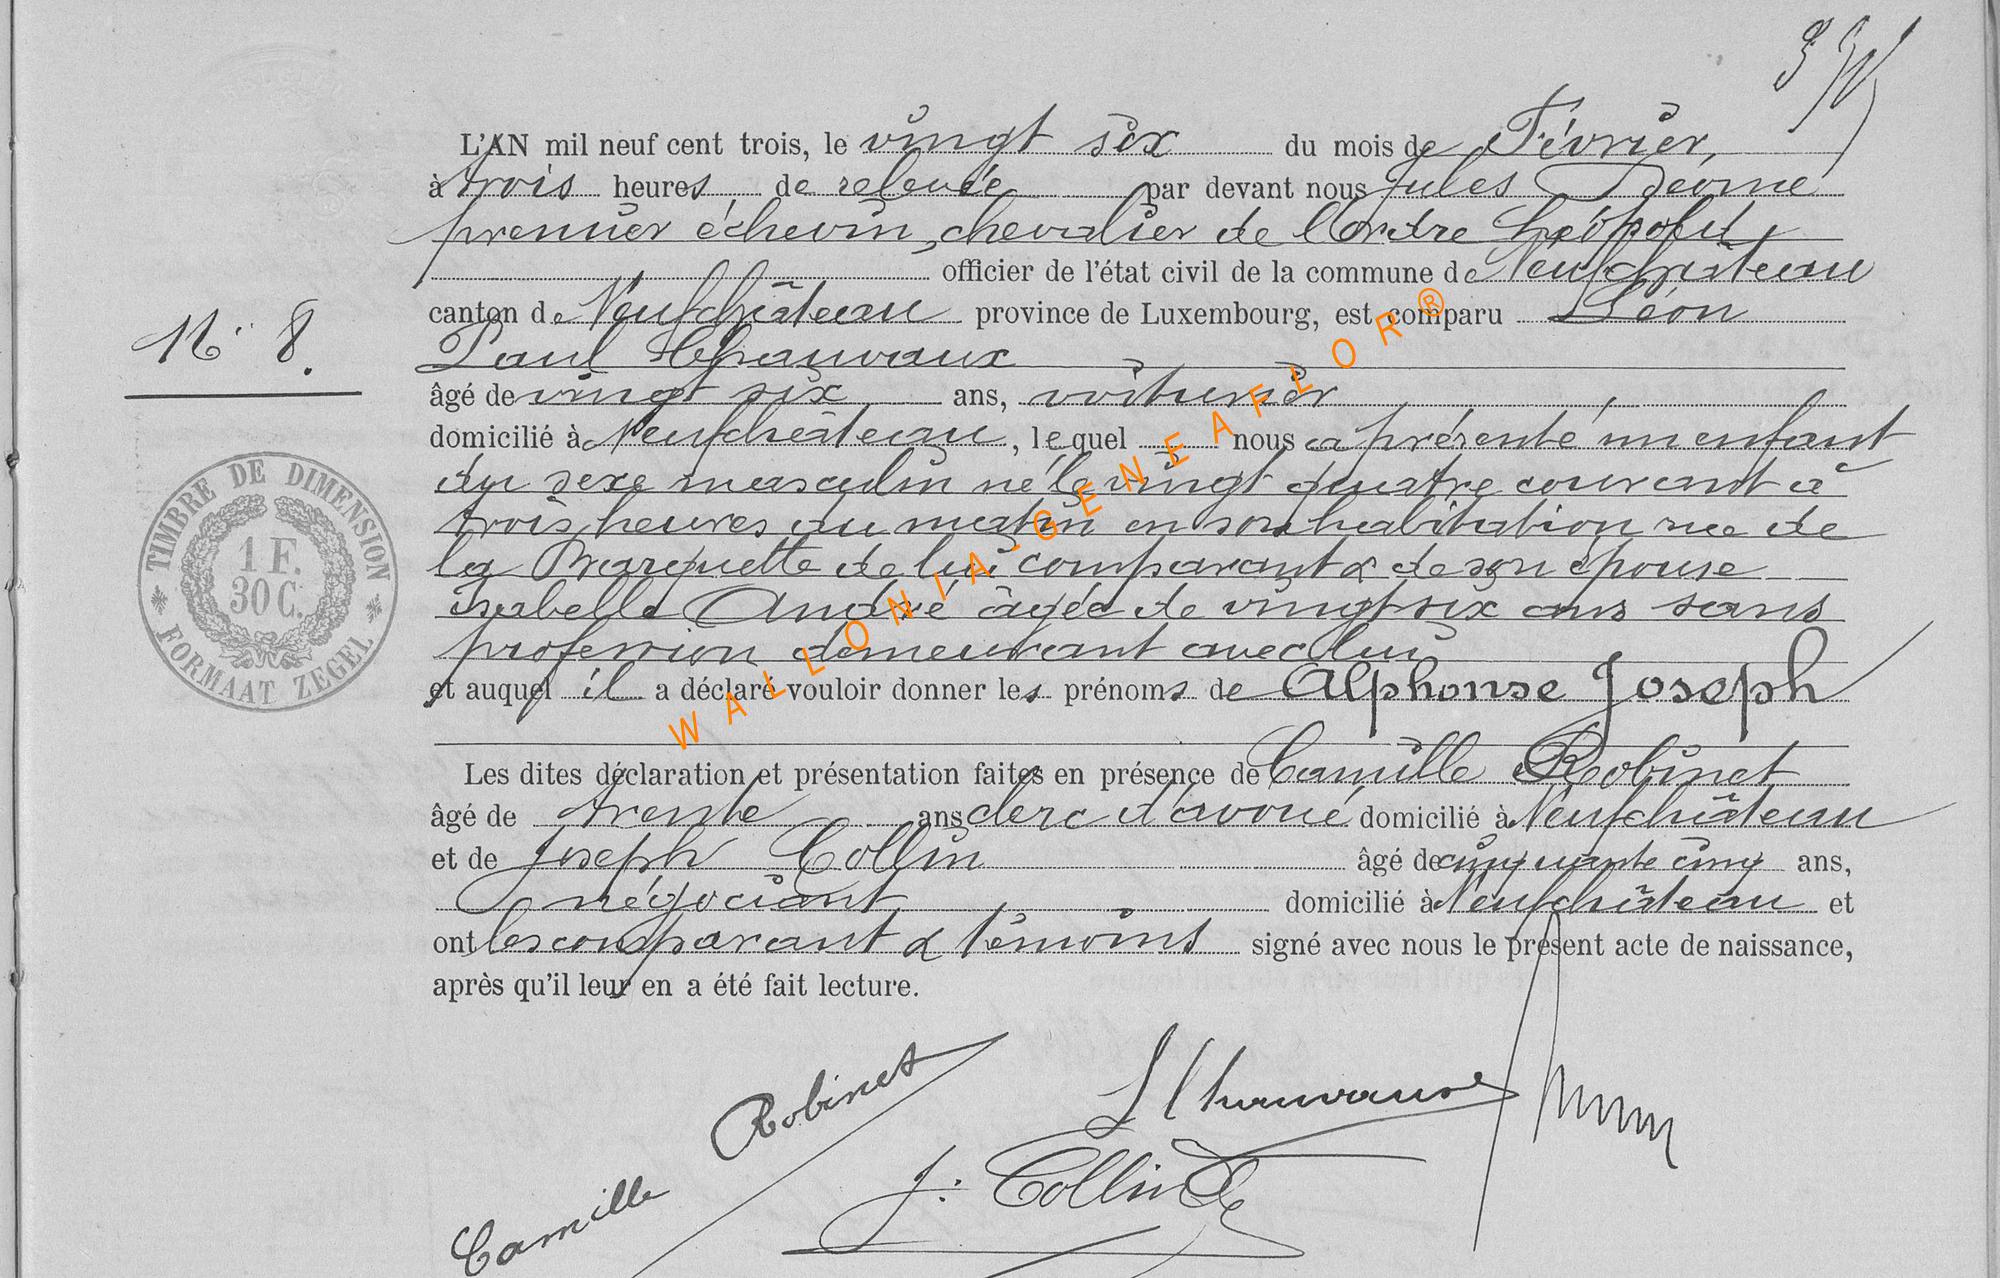 L'AN mil neuf cent trois, le vingt six du mois de Février,
à trois heures de relevée par devant nous Jules
premier échevin, chevalier de l'Ordre Léopold,
officier de l'état civil de la commune de Neufchâteau
canton de Neufchâteau province de Luxembourg, est comparu Léon
N° 8.
Paul Chauvaux
âgé de vingt six ans, voiturier
domicilié à Neufchâteau, lequel nous a présenté un enfant
du sexe masculin né le vingt quatre courant à
trois heures du matin en son habitation rue de
la de lui comparant & de son épouse
isabelle André âgée de vingt six ans sans
profession demeurant avec lui
et auquel il a déclaré vouloir donner les prénoms de Alphonse Joseph
Les dites déclaration et présentation faites en présence de Camille Robinet
âgé de trente ans clerc d'avoué domicilié à Neufchâteau
et de Joseph Collin âgé de cinquante cinq ans,
négociant domicilié à Neufchâteau et
ont les comparant & témoins signé avec nous le présent acte de naissance,
après qu'il leur en a été fait lecture.
TIMBRE DE DIMENSION
1 F.
30 C.
FORMAAT ZEGEL
WALLONIA-GENEAFLOR®
Camille Robinet
L Chauvaux
J. Collin